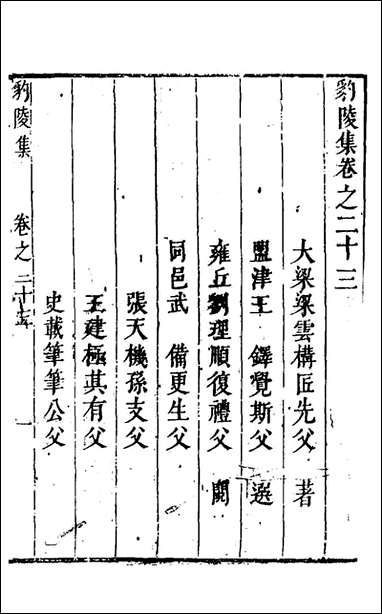 豹陵集卷之二十三
大梁梁雲構匠先父　著
盟津王　鐸覺斯父　選
雍丘劉理順復禮父　閱
同邑武　備更生父
張天機孫支父
王建極其有父
史載筆筆公父
豹陵集　卷之二十三　一